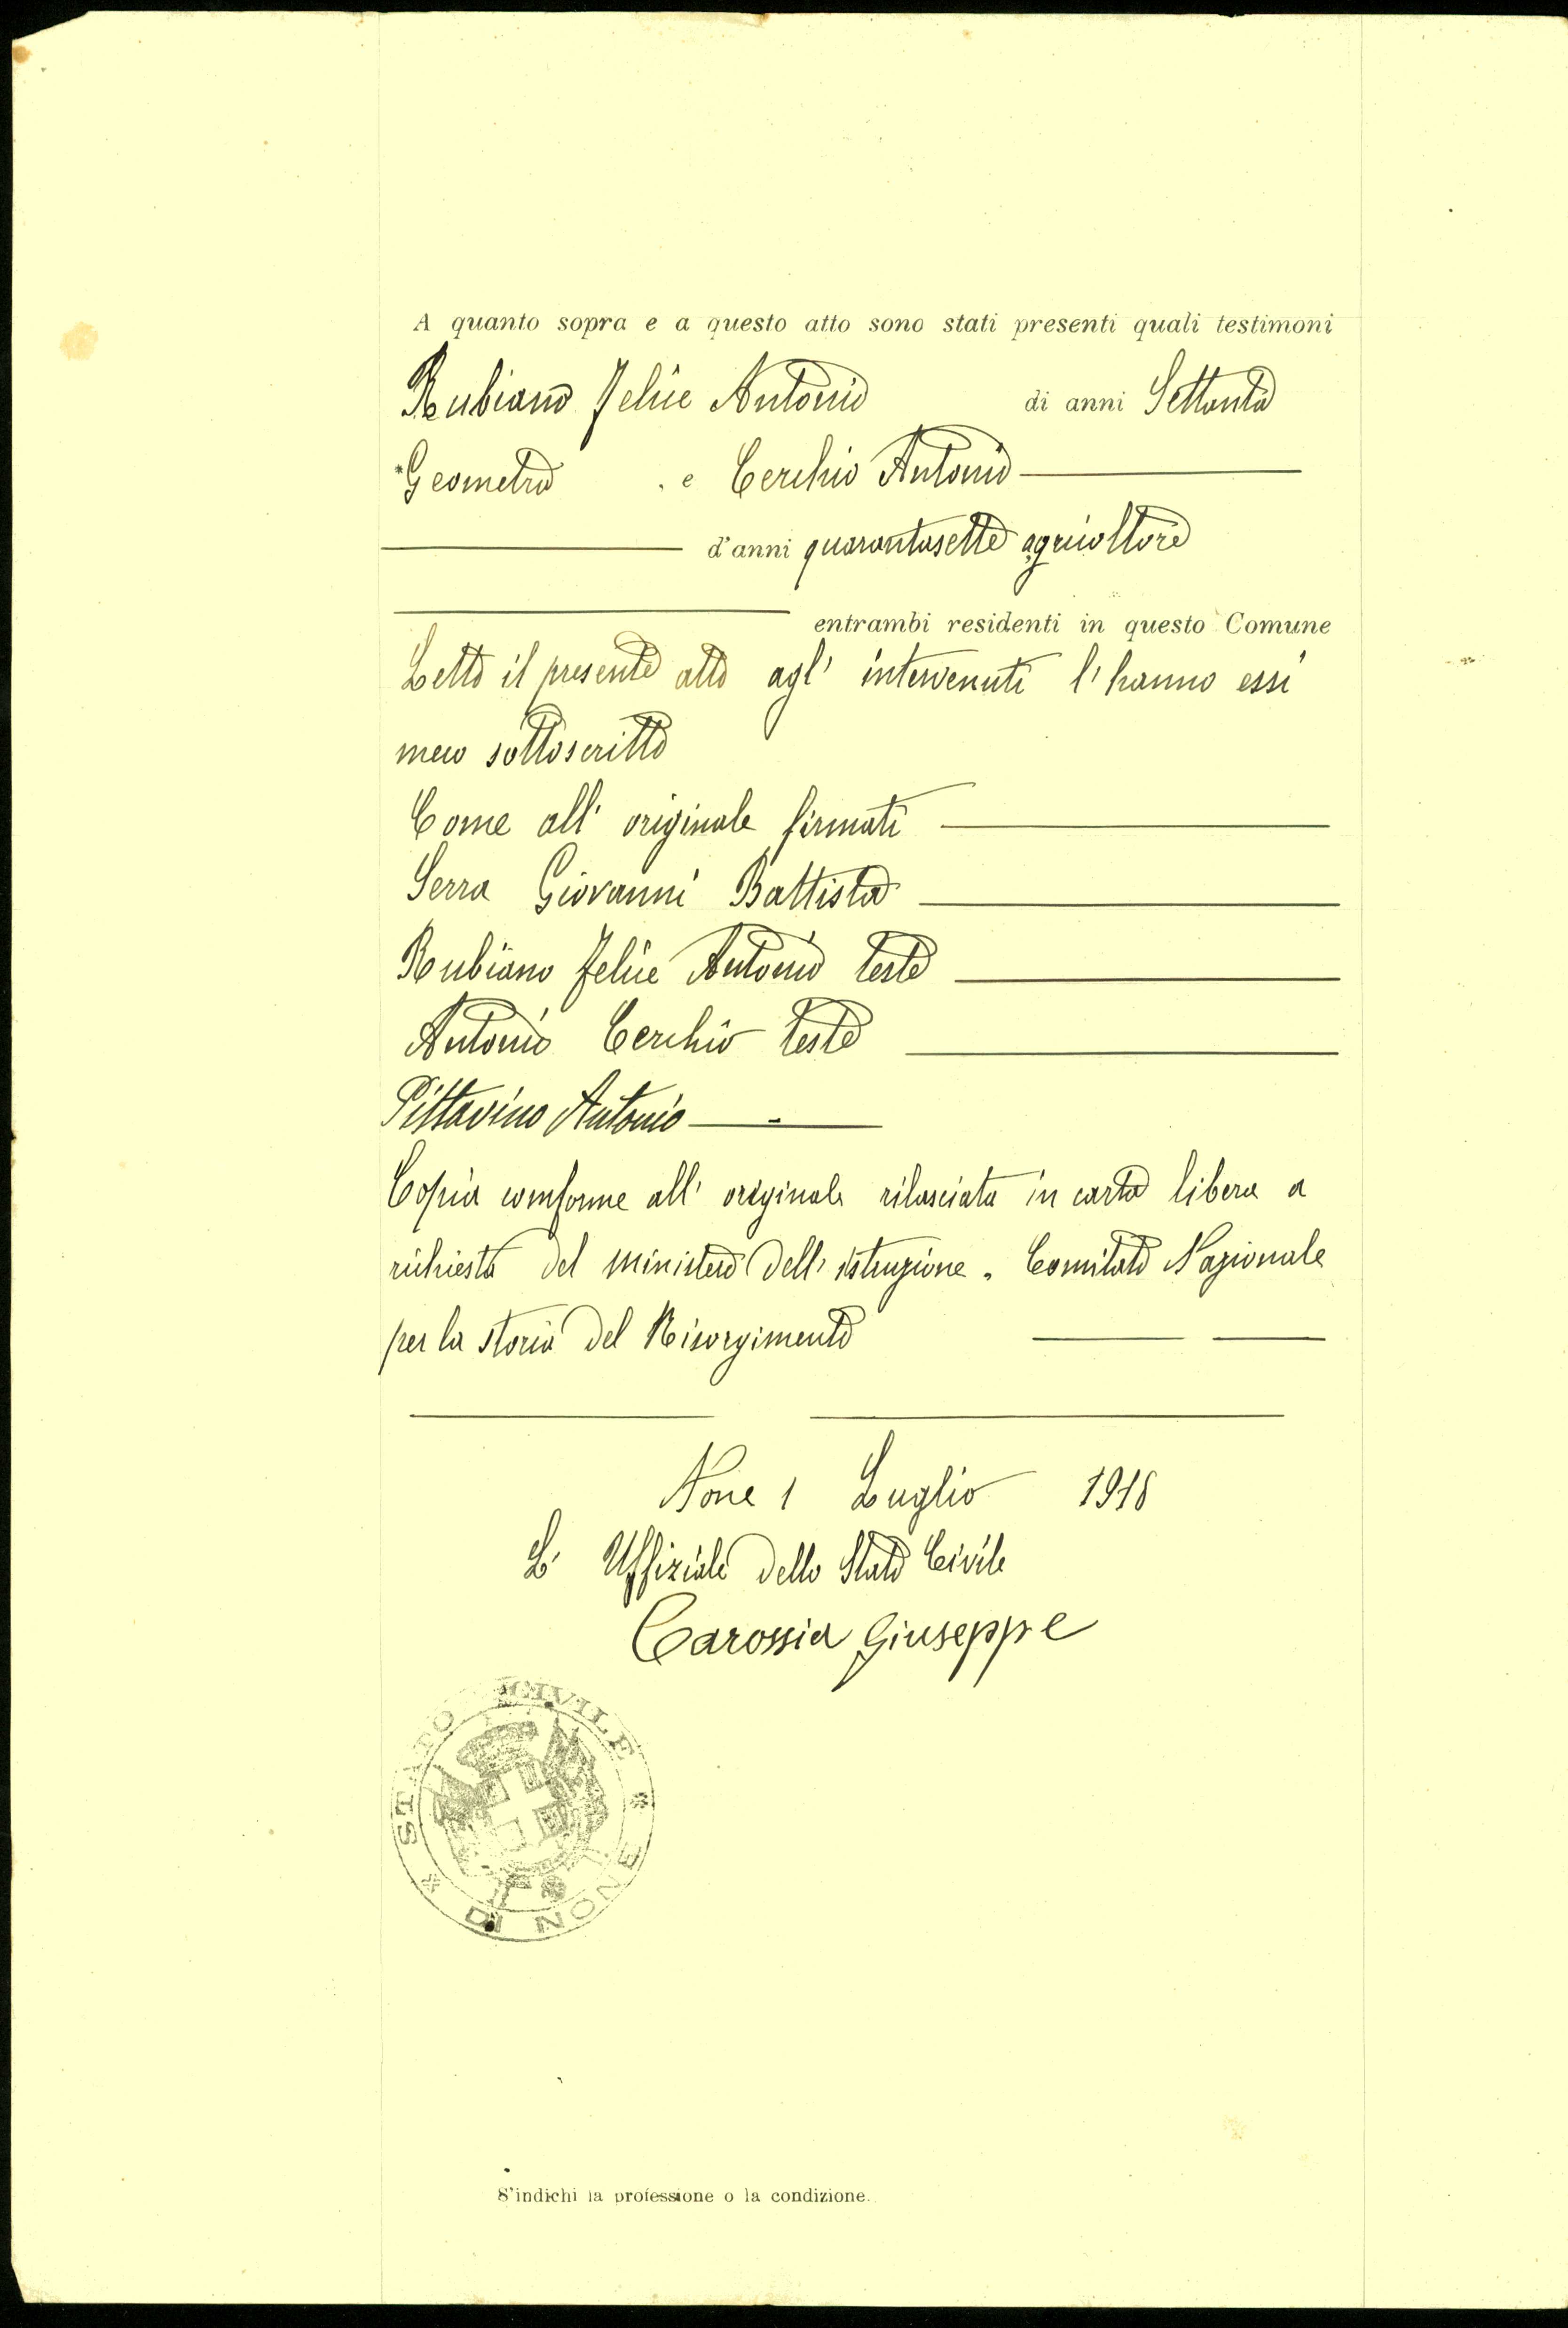 A quanto sopra e a questo atto sono stati presenti quali testimoni
Rubiano Felice Antonio di anni Settanta
*Geometra . e Cerchio Antonio
d'anni quarantasette agricoltore
entrambi residenti in questo Comune
Letto il presente atto agl' intervenuti l' hanno essi
meco sottoscritto
Come all' originale firmati
Serra Giovanni Battista
Rubiano Felice Antonio teste
Antonio Cerchio teste
Pittavino Antonio
Copia comforme all' originale rilasciata in carta libera a
richiesta del ministero dell' istruzione . Comitato Nazionale
per la storia del Risorgimento
None 1 Luglio 1918
L' Uffiziale dello Stato Civile
Carossia Giuseppe
STATO CIVILE
DI NONE
S'indichi la professione o la condizione.